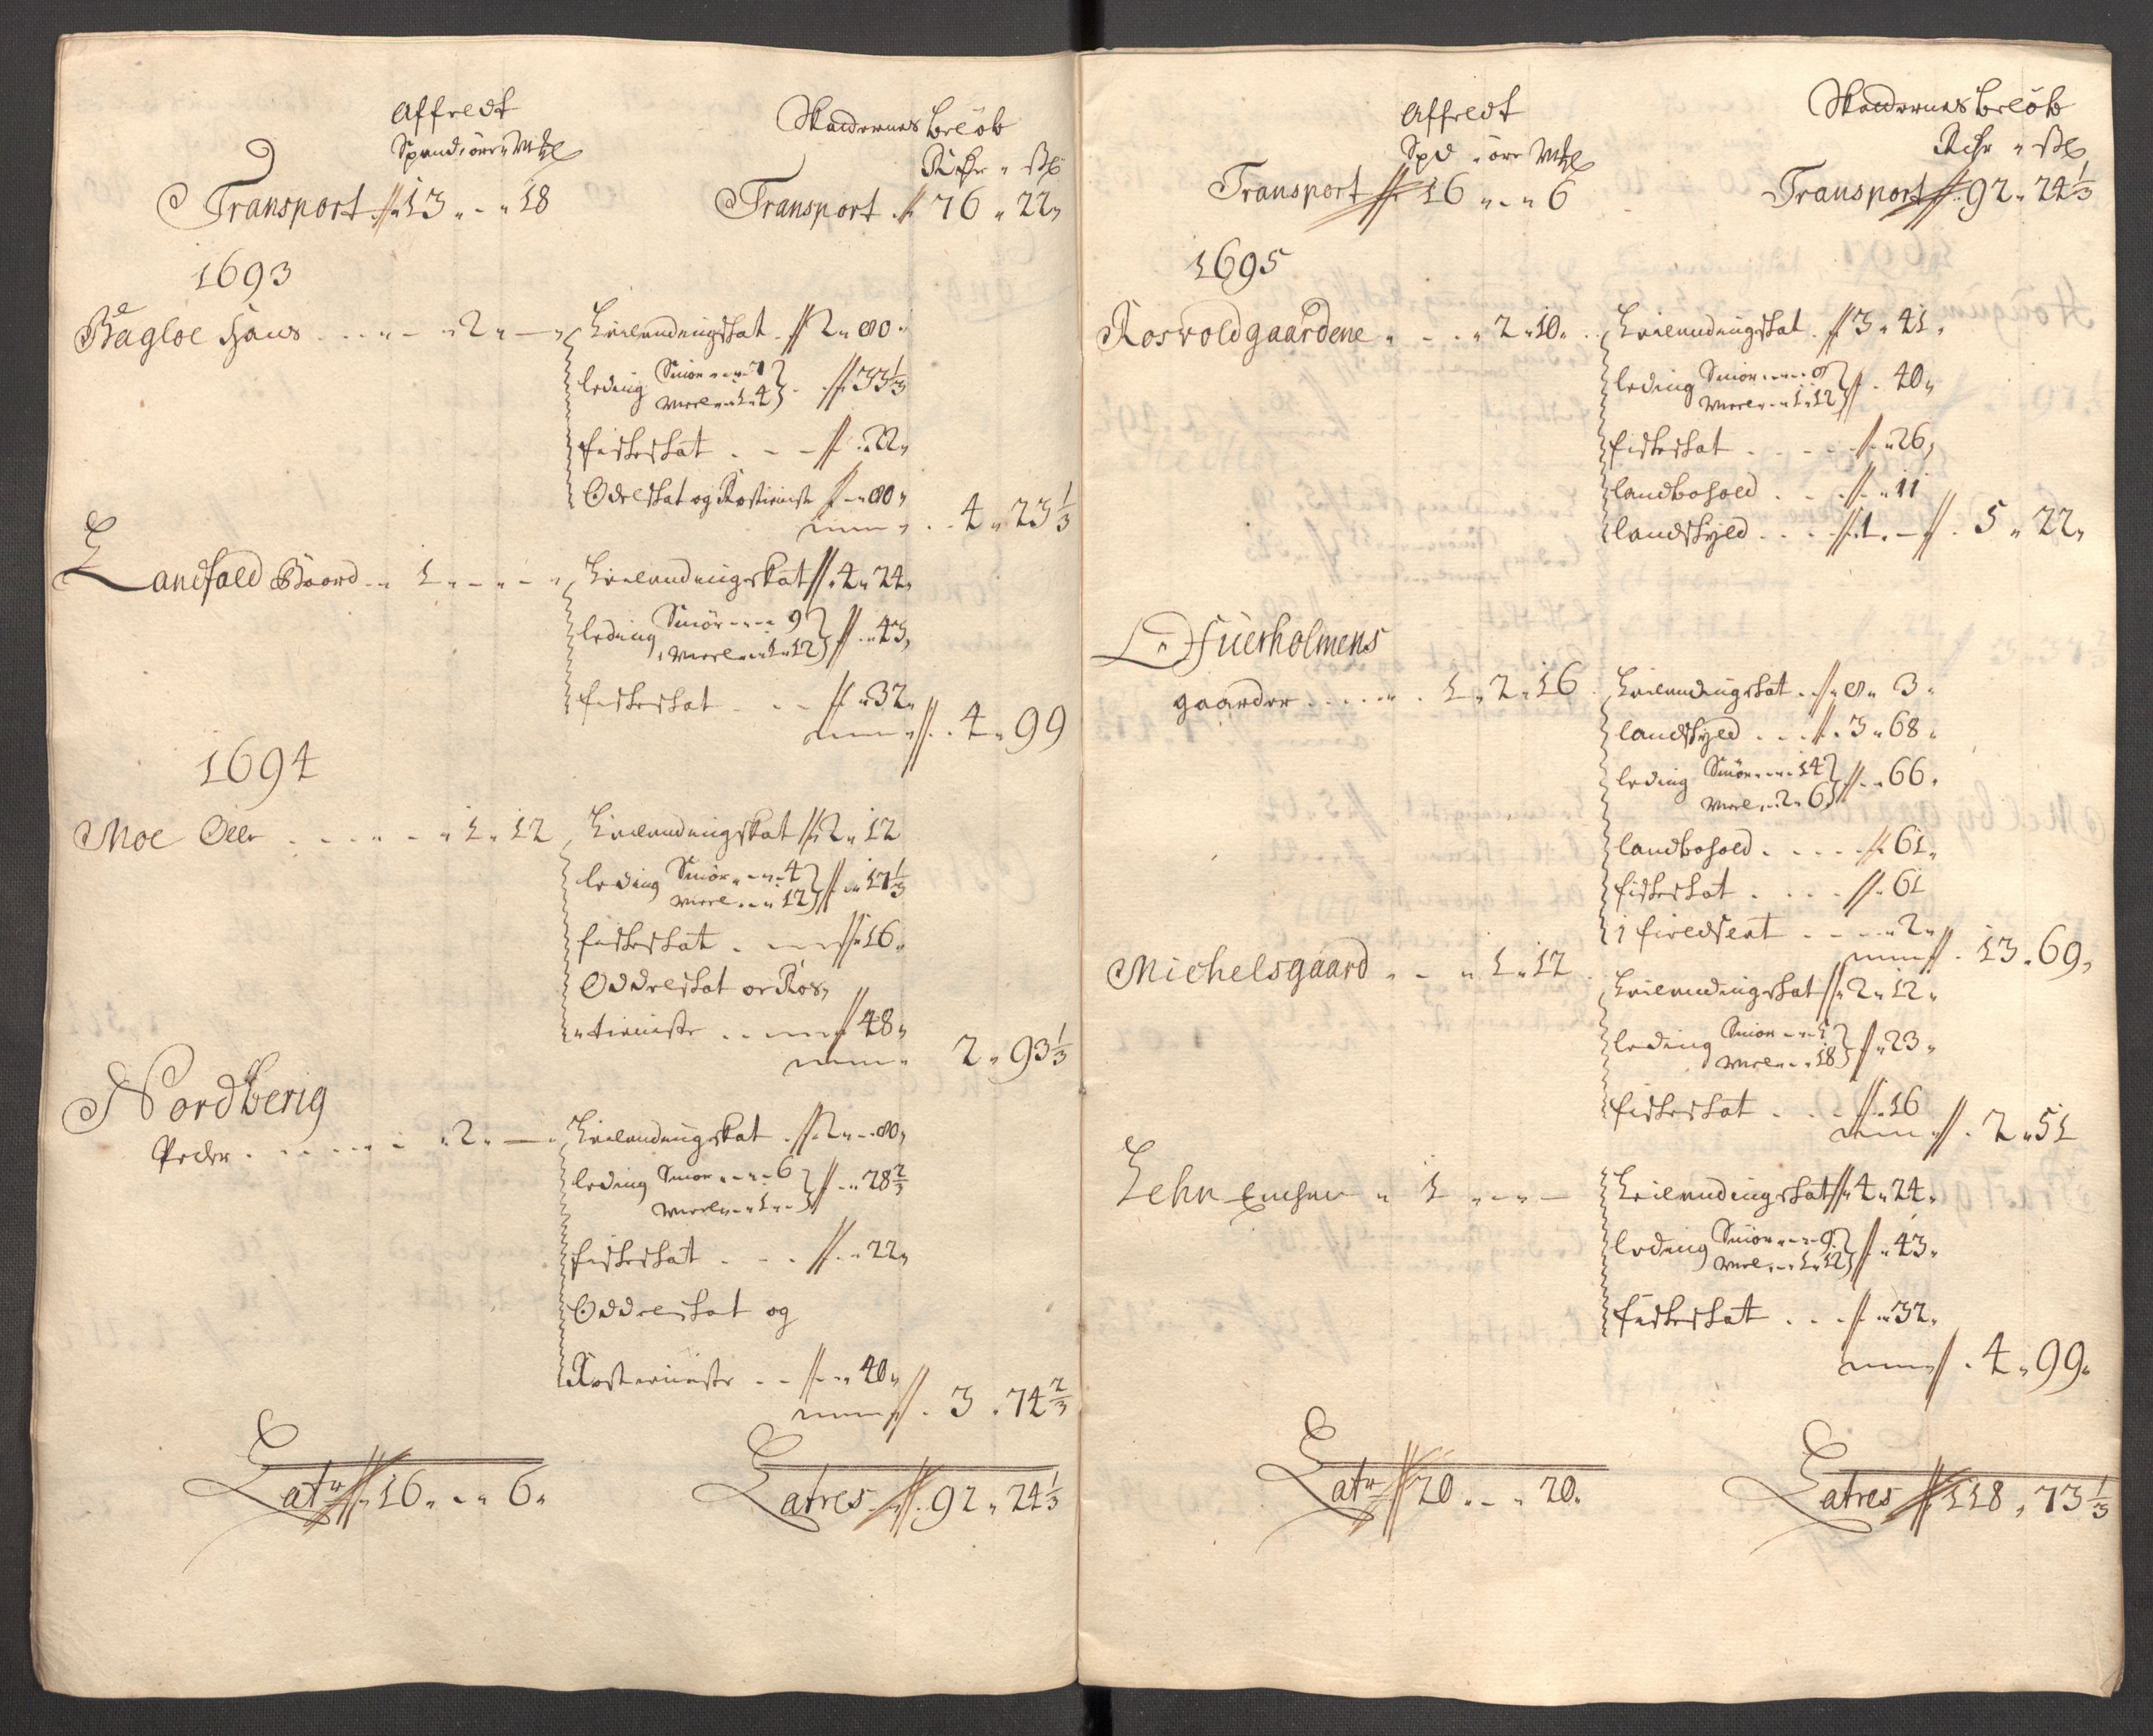 Affredt
Spand øre Mkl
Skadernes beløb
Rdr ß
Transport 13 - 18
Transport 76 22
1693
Bagloe Hans - 2 - Leilendingskat 2 - 80
leding Smør 7 Meel 1 - 4 33 1/3
fiskeskat 22
Odelskat og Rostieniste 80
4 - 23 1/3
Landfald Baard 1 - - Leilendingskat 4 - 24
leding Smör 9 Meel 1 - 12 43
fiskeskat 32
4 - 99
1694
Moe Oller - 1 - 12 Leilendingskat 2 - 12
leding Smör 4 Meel 12 17 1/3
fiskeskat 16
Oddelskat or Ros
tieniste 48
2 - 93 1/3
Nordberig
Peder - 2 - Leilendingskat 2 - 80
leding Smör 6 Meel 1 28 2/3
fiskeskat 22
Oddelskat og
Rostieniste 40
3 - 74 2/3
Latr 16 - 6
Latres 92 - 24 1/3
Affredt
Spd øre Mkl
Skadernes beløb
Rdr ß
Transport 16 - 6
Transport 92 - 24 1/3
1695
Rosvoldgaardene - 2 - 10 Leilendingskat 3 - 41
leding Smör 8 Meel 1 - 12 40
fiskeskat 26
landbohold 11
landskyld 1 -
5 - 22
Fuerholmens
gaarder 1 - 2 - 16 Leilendingskat 8 - 3
landskyld 3 - 68
leding Smör 14 Meel 2 - 6 66
landbohold 61
fiskeskat 61
1 2
13 - 69
Michelsgaard - 1 - 12
Leilendingskat 2 - 12
leding Smör 5 Meel 18 23
fiskeskat 16
2 - 51
Lehn 1 - - Leilendingskat 4 - 24
leding Smör 9 Meel 1 - 12 43
fiskeskat 32
4 - 99
Latr 20 - 20
Latres 118 - 73 1/3